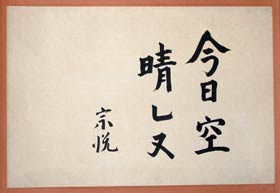 今日空
晴レ又
宗悦